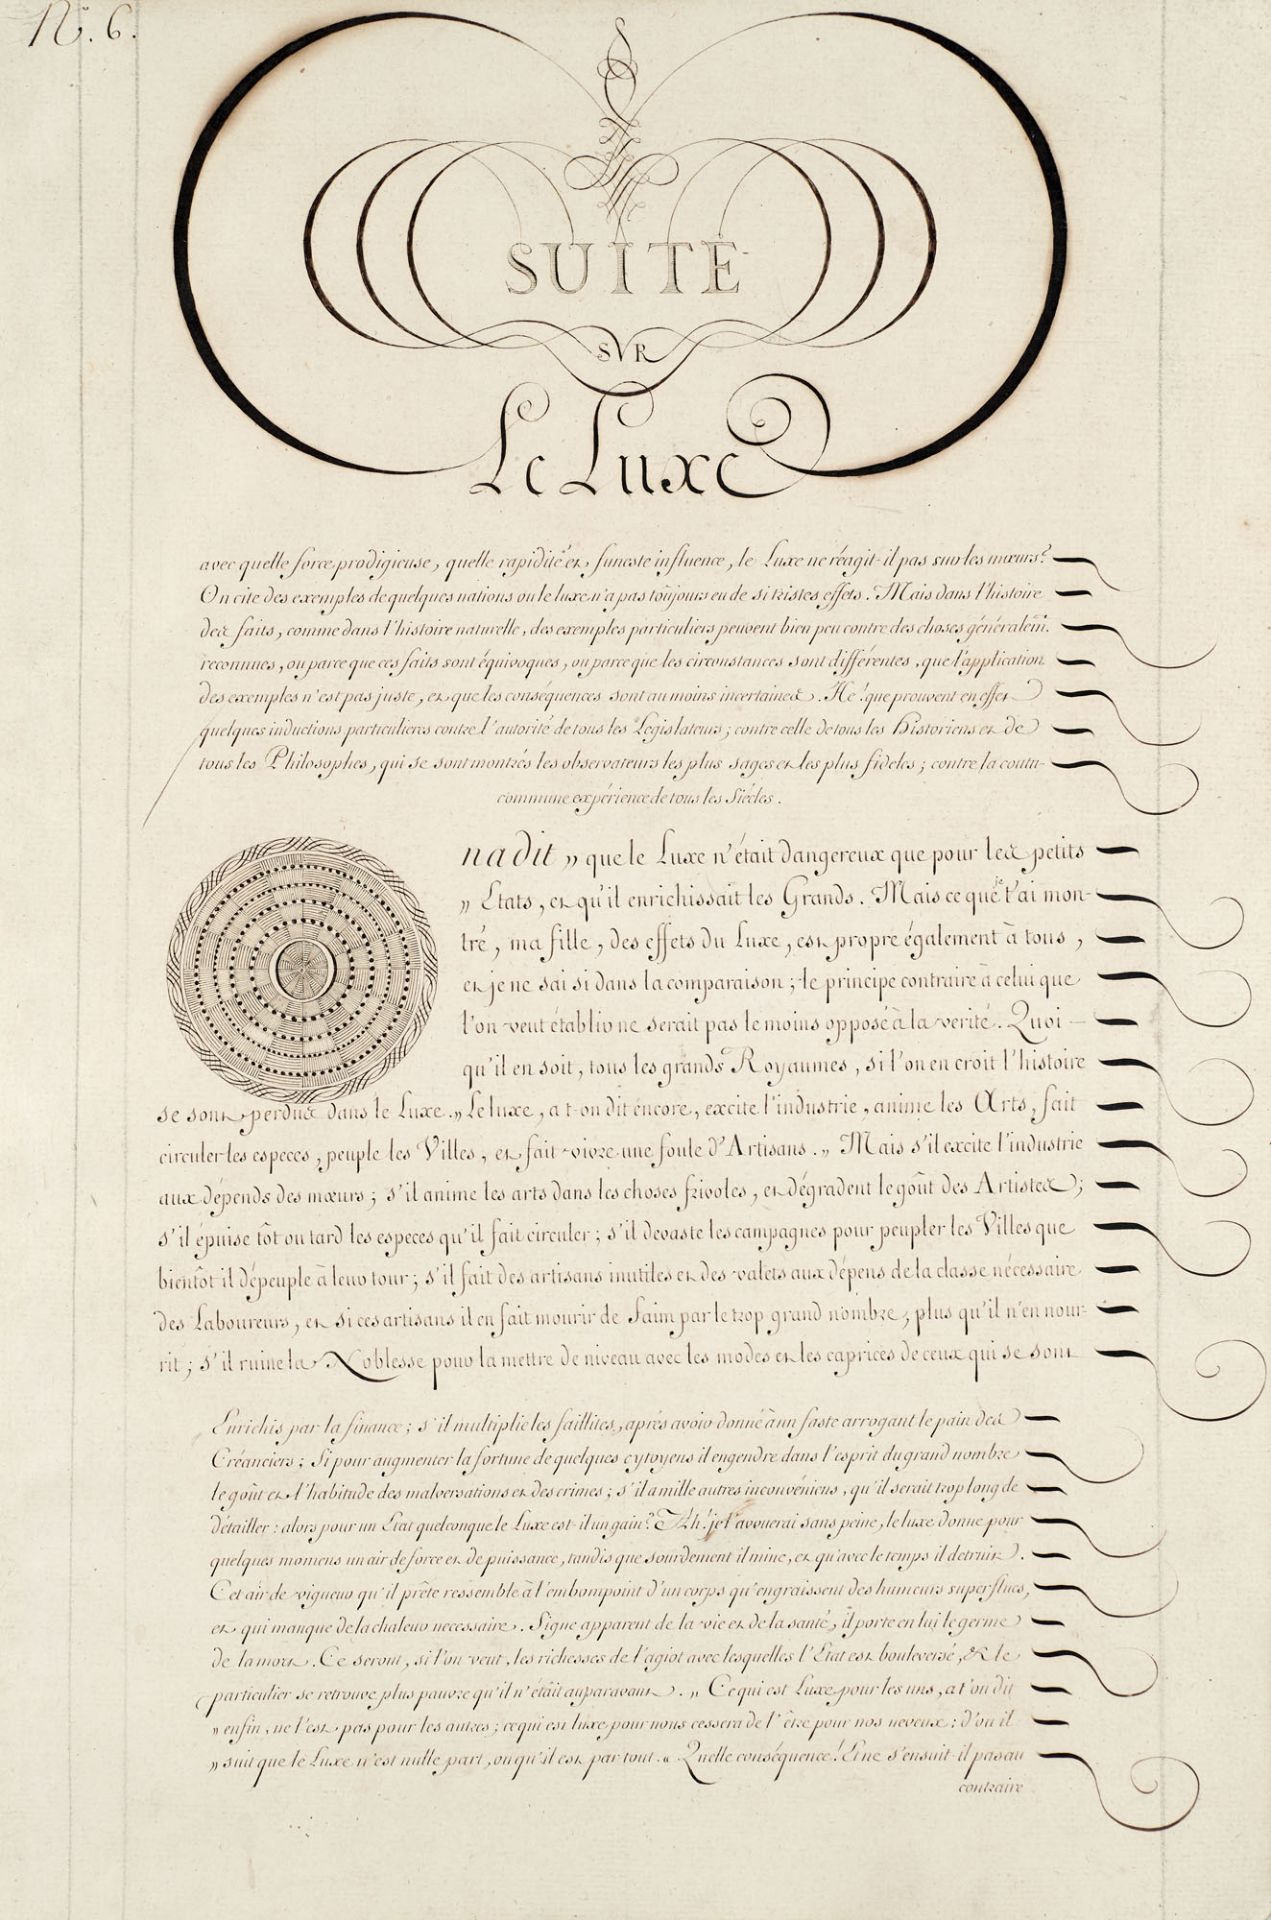 N.º 6.
SUITE
SUR
Le Luxe
avec quelle force prodigieuse, quelle rapidité et funeste influence, le Luxe ne réagit-il pas sur les mœurs?
On cite des exemples de quelques nations ou le luxe n'a pas toûjours eu de si tristes effets. Mais dans l'histoire
des faits, comme dans l'histoire naturelle, des exemples particuliers peuvent bien peu contre des choses généralem.t
reconnues, ou parce que ces faits sont équivoques, ou parce que les circonstances sont différentes, que l'application
des exemples n'est pas juste, et que les conséquences sont au moins incertaines. Hé! que prouvent en effet
quelques inductions particulieres contre l'autorité de tous les Législateurs; contre celle de tous les Historiens et de
tous les Philosophes, qui se sont montrés les observateurs les plus sages et les plus fideles; contre la
commune expérience de tous les Siécles.
On a dit „ que le Luxe n'était dangereux que pour les petits
„ Etats, et qu'il enrichissait les Grands. Mais ce que je t'ai mon-
tré, ma fille, des effets du Luxe, est propre également à tous,
et je ne sai si dans la comparaison; le principe contraire à celui que
l'on veut établir ne serait pas le moins opposé à la verité. Quoi
qu'il en soit, tous les grands Royaumes, si l'on en croit l'histoire
se sont perdus dans le Luxe. „ Le luxe, a t-on dit encore, excite l'industrie, anime les Arts, fait
circuler les especes, peuple les Villes, et fait vivre une foule d'Artisans. „ Mais s'il excite l'industrie
aux dépends des mœurs; s'il anime les arts dans les choses frivoles, et dégradent le goût des Artistes;
s'il épuise tôt ou tard les especes qu'il fait circuler; s'il devaste les campagnes pour peupler les Villes que
bientôt il dépeuple à leur tour; s'il fait des artisans inutiles et des valets aux dépens de la classe nécessaire
des Laboureurs, et si ces artisans il en fait mourir de Faim par le trop grand nombre, plus qu'il n'en nour-
rit; s'il ruine la Noblesse pour la mettre de niveau avec les modes et les caprices de ceux qui se sont
Enrichis par la finance; s'il multiplie les faillites, après avoir donné à un faste arrogant le pain des
Créanciers; Si pour augmenter la fortune de quelques cytoyens il engendre dans l'esprit du grand nombre
le goût et l'habitude des malversations et des crimes; s'il a mille autres inconvéniens, qu'il serait trop long de
détailler: alors pour un Etat quelconque le Luxe est-il un gain? Ah! je l'avouerai sans peine, le luxe donne pour
quelques momens un air de force et de puissance, tandis que sourdement il mine, et qu'avec le temps il detruit.
Cet air de vigueur qu'il prête ressemble à l'embonpoint d'un corps qu'engraissent des humeurs superflues,
et qui manque de la chaleur necessaire. Signe apparent de la vie et de la santé, il porte en lui le germe
de la mort. Ce seront, si l'on veut, les richesses de l'agiot avec lesquelles l'Etat est bouleversé, & le
particulier se retrouve plus pauvre qu'il n'était auparavant. „ Ce qui est Luxe pour les uns, a t'on dit
„ enfin, ne l'est pas pour les autres; ce qui est luxe pour nous cessera de l'être pour nos neveux; d'où il
„ suit que le Luxe n'est nulle part, ou qu'il est par tout. „ Quelle conséquence! Et ne s'ensuit-il pas au
contraire